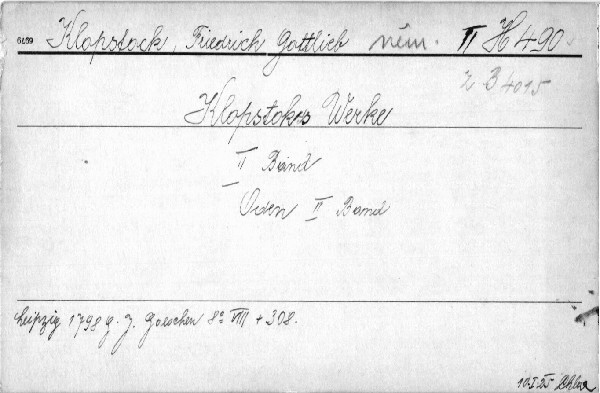 6469 Klopstock, Friedrich Gottlieb něm. II H 490
2 B 4015
Klopstoks Werke
II Band
Oden II Band
Leipzig 1798 g. J. Goeschen 8° VIII + 308.